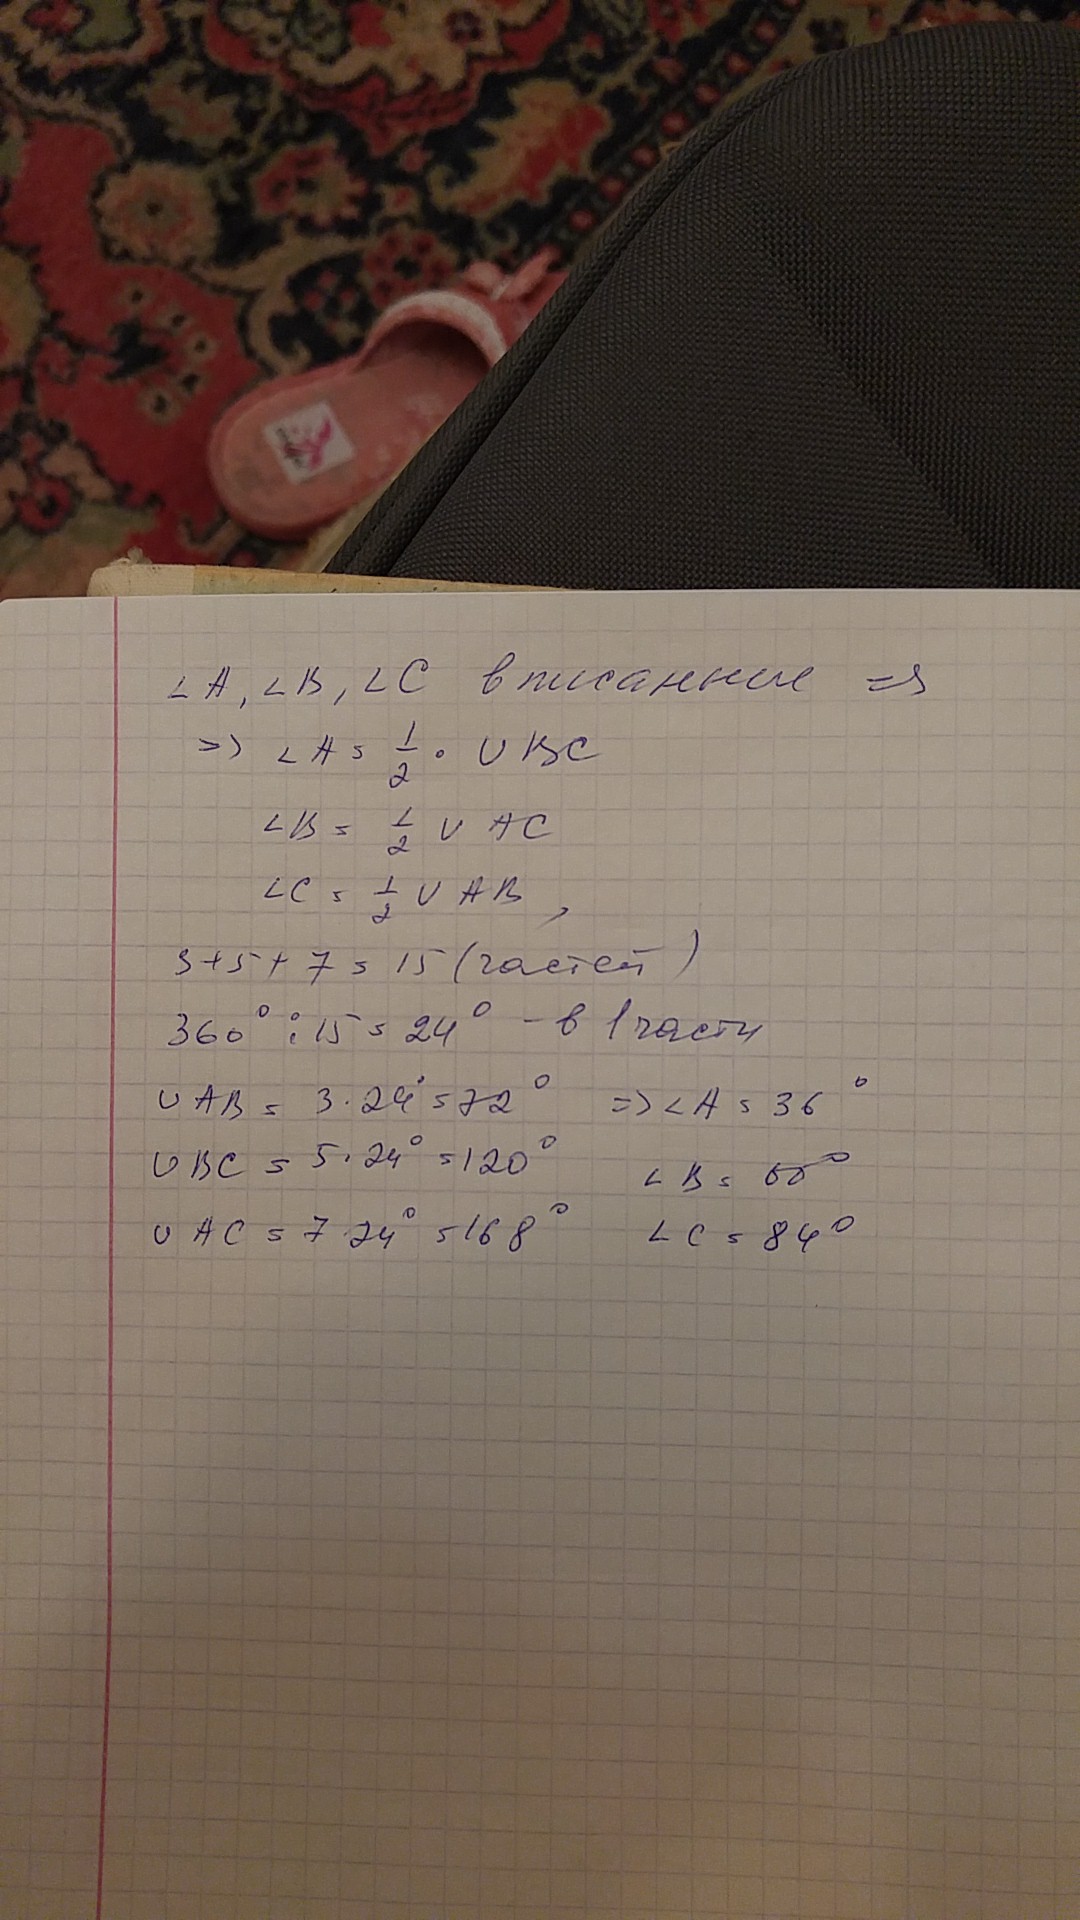 ∠A, ∠B, ∠C вписанные =>
=> ∠A = 1/2 · ∪BC
∠B = 1/2 ∪ AC
∠C = 1/2 ∪ AB,
3+5+7=15 (частей)
360° : 15 = 24° - в 1 части
∪ AB = 3·24° = 72° => ∠A = 36°
∪ BC = 5·24° = 120° ∠B = 60°
∪ AC = 7·24° = 168° ∠C = 84°